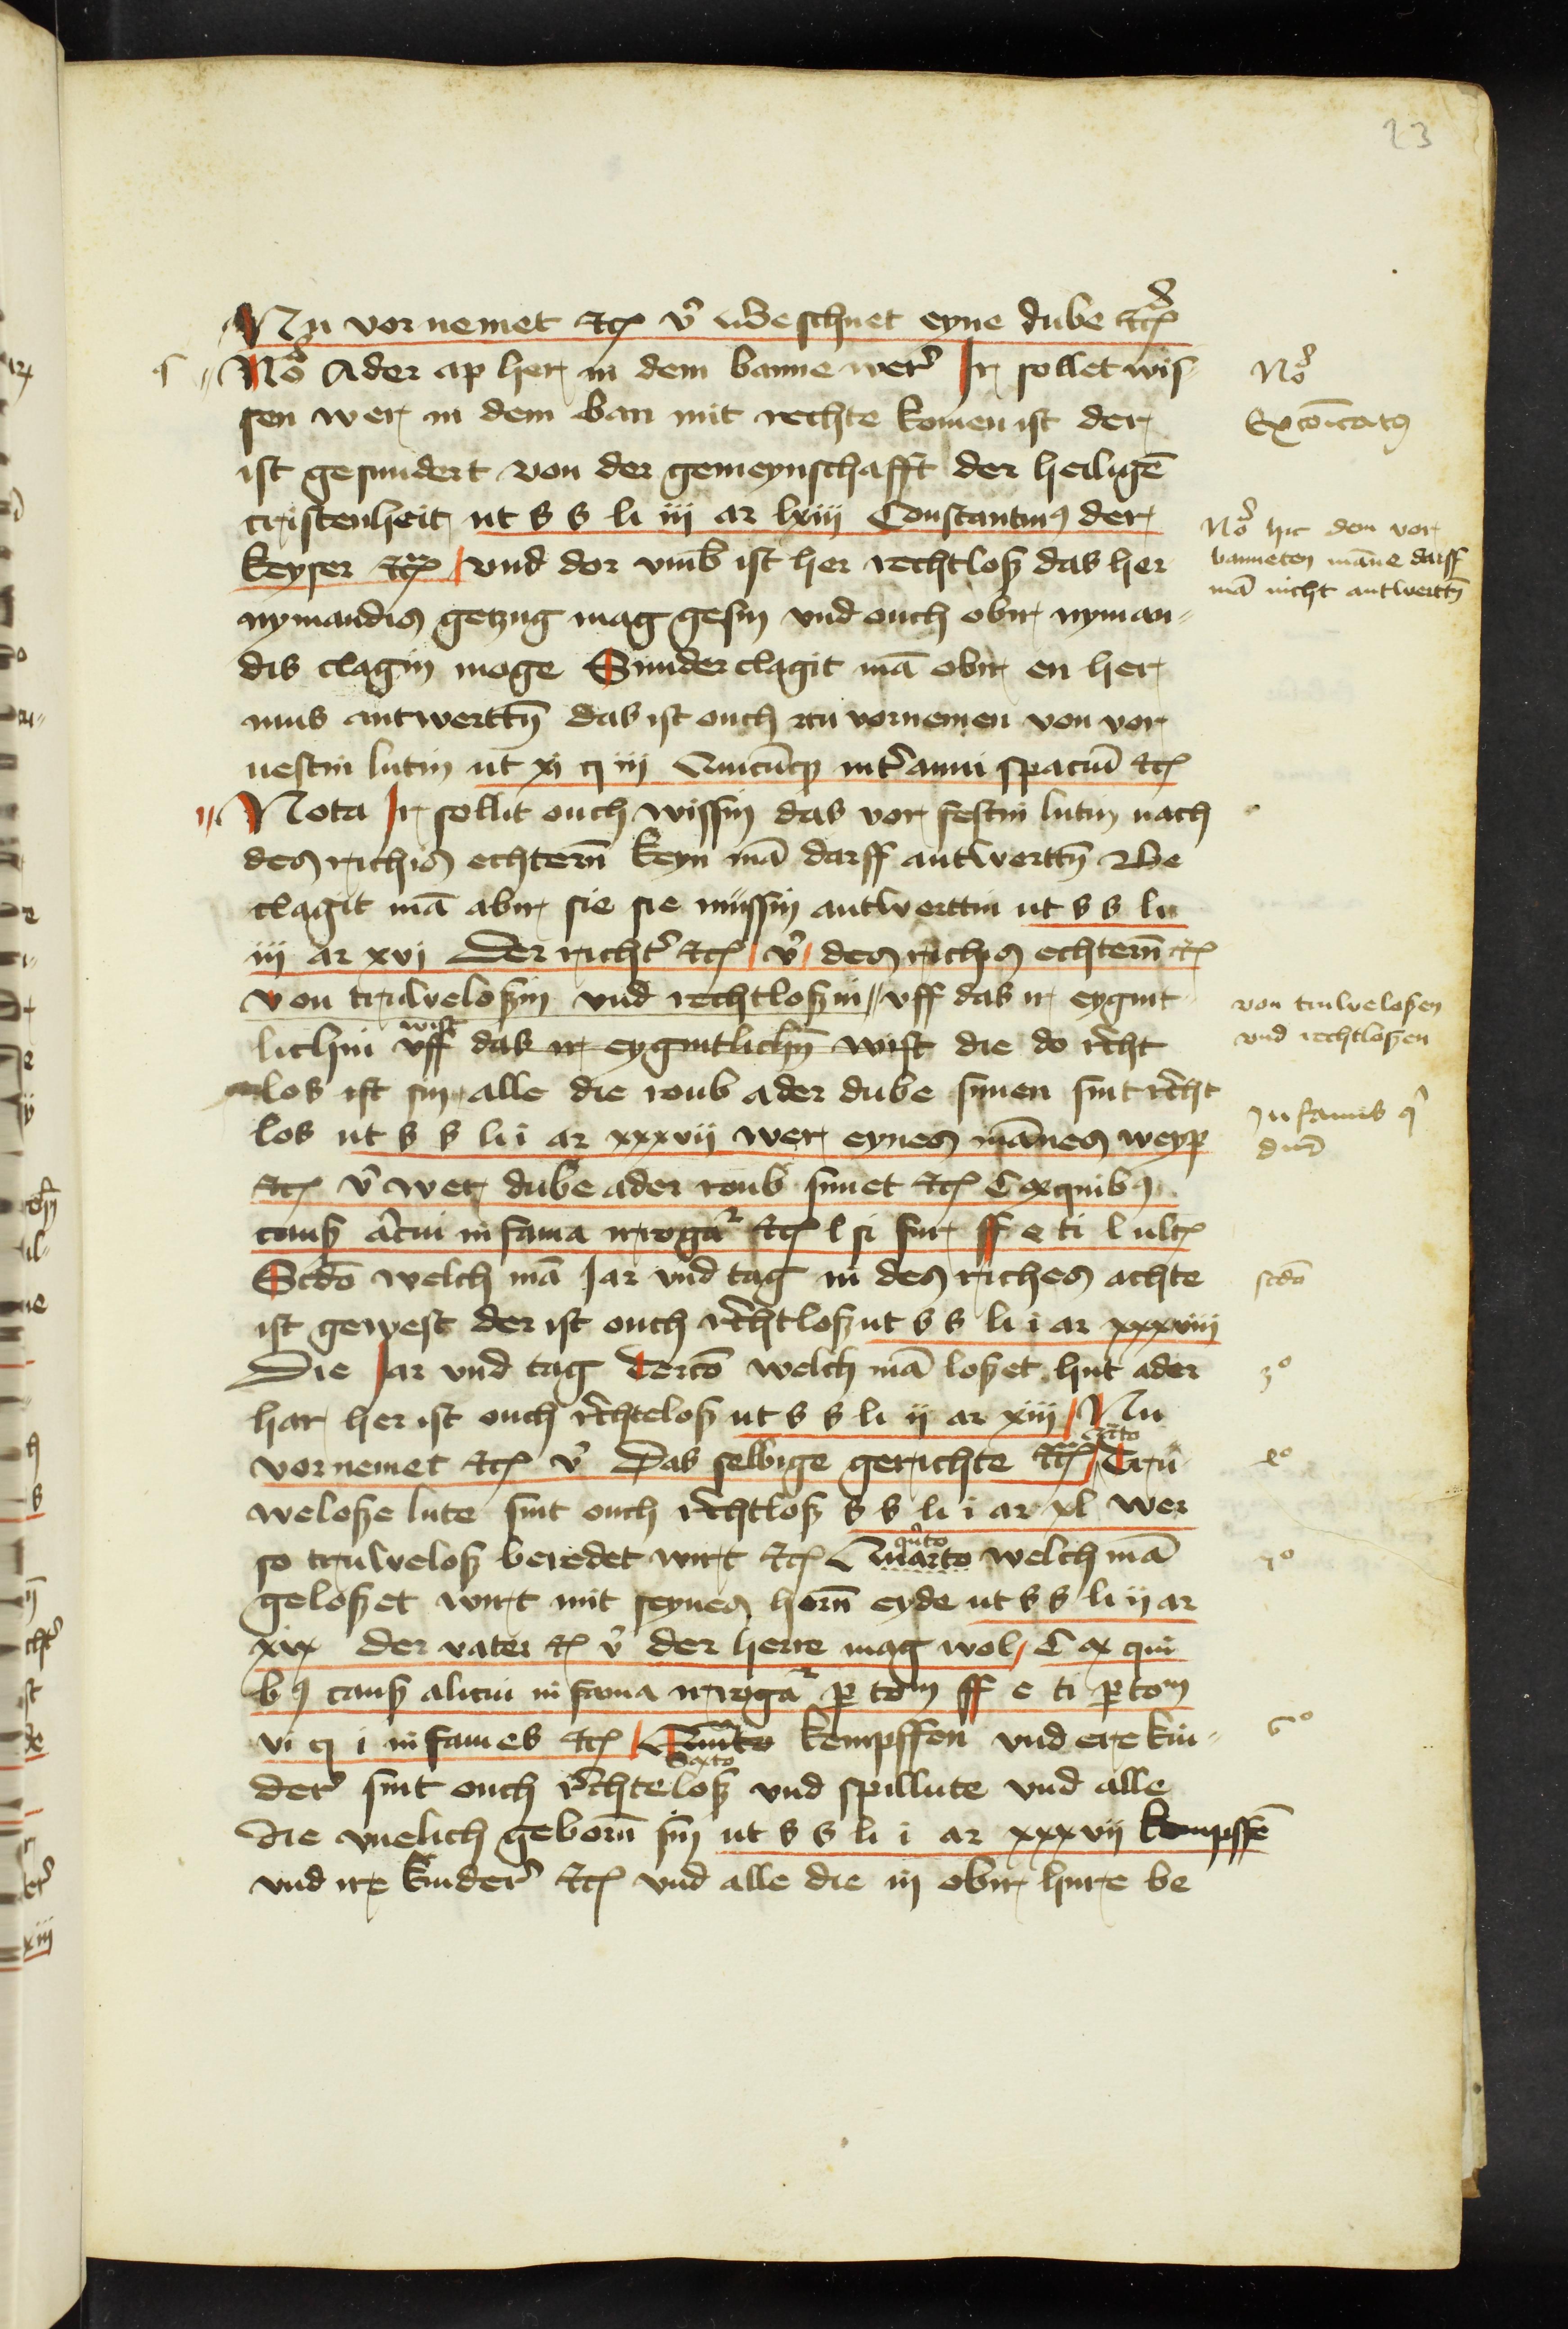 23
Nu vor nemet etc v̉ Geschuet eyne dube etc
No Ader ap her in dem banne wer̉ Ir sollet wis-
sen wer in dem ban mit rechte komen ist der
ist gesundert von der gemeynschafft der heiligē
cristenheit ut s s li iii ar lxiii Constantin9 der
keyser etc vnd dor vmb ist her rechtloß das her
nymandis getzug mag gesin vnd ouch obir nyman-
dis clagin moge Sunder clagit mā obir en her
mus antwerttñ das ist ouch czu vornemen von vor
uestin lutin ut xi q iii Quicūq3 intr̉ anni spaciū etc
Nota Ir sollit ouch wissin das vor festin lutin nach
des richis echterñ keyn mā darff antwerttñ Be
clagit mā abir sie sie mussin antwerttin ut s s li
iii ar xvi Der richt̉ etc v̉ des richis echterñ etc
von truweloßin vnd rechtloßin vff das ir eygint
lichin wist vff das ir eygintlichñ wist die do r̉cht
los ist sin alle die roub ader dube sunen sint r̉cht
los ut s s li i ar xxxvii wer eynes mānes weyp
etc v̉ wer dube ader roub sunet etc C ex quib9
causß a̅cui in fama irroga2 etc l si fur ff e ti l ult
Scdo welch mā Jar vnd tag in des riches achte
ist gewest der ist ouch r̉chtloß ut s s li i ar xxxviii
Die Jar vnd tag Tercō welch mā loßet hut ader
har her ist ouch r̉chteloß ut s s li ii ar xiii Nu
vornemet etc v̉ Das selbige gerichte etc Qrto Tru-
weloße lute sint ouch r̉chtloß s s li i ar xl wer
so truweloß beredet wirt etc Quarto qūto welch mā
geloßet wirt mit seynes herñ eyde ut s s li ii ar
xix der vater etc v̉ der herre mag wol C ex qui
b9 causß alicui in fama irroga2 p tom ff e ti p tom
vi q i in fames etc Quīto Sexto kempffen vnd ere kin-
der̉ sint ouch r̉chteloß vnd spillute vnd alle
die vnelich geborñ sin ut s s li i ar xxxvii kempffē
vnd ire kinder̉ etc vnd alle die in obir hure be
No
Excōicat9
No hic den vor
banneten māne darff
mā nicht antwerttñ
von truweloßen
vnd rechtloßen
Infamis
scdo
3o
4o
5o
6o